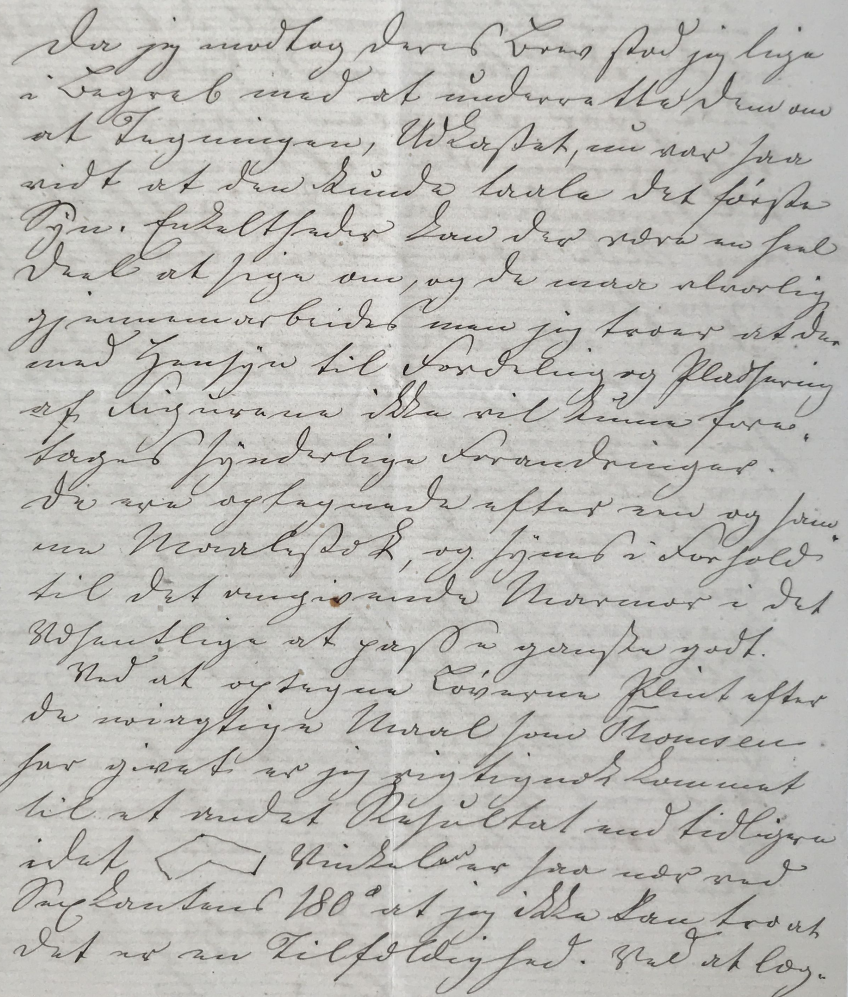 Da jeg modtog Deres Brev stod jeg lige
i Begreb med at underrette Dem om
at Tegningen, Udkastet, nu var saa
vidt at den kunde taale det første
Syn. Enkeltheder kan der være en heel
Deel at sige om, og de maa alvorlig
gjennemarbeides men jeg troer at der
med Hensyn til Fordeling og Pladsering
af Figurene ikke vil kunne fore-
tages synderlige Forandringer.
De ere optegnede efter een og sam-
me Maalestok, og synes i Forhold
til det omgivende Marmor i det
Væsentlige at passe ganske godt.
Ved at optegne Løverne Plint efter
de nøiagtige Maal som Thomsen
har givet er jeg rigtignok kommet
til et andet Resultat end tidligere
idet Vinkelen er saa nær ved
Sexkantens 180° at jeg ikke kan tro at
det er en Tilfældighed. Ved at læg-